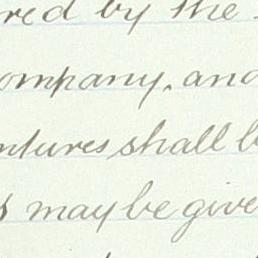 red by the
ompany, and
ntures shall b
s may be give